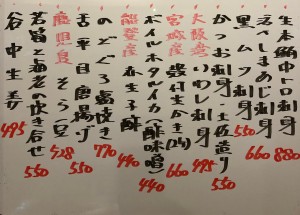 生本鮪中トロ刺身 880
活〆しまあじ刺身 660
黒ムツ刺身 550
かつお刺身・土佐造り 550
大阪産 いわし刺身 495
宮城産 殻付生かき 660
ボイルホタルイカ(酢味噌) 440
能登産 赤生子酢 440
のどぐろ塩焼き 770
舌平目唐揚げ 550
鹿児島産 そら豆 528
若筍と蕗の吹き合せ 550
谷中生姜 495